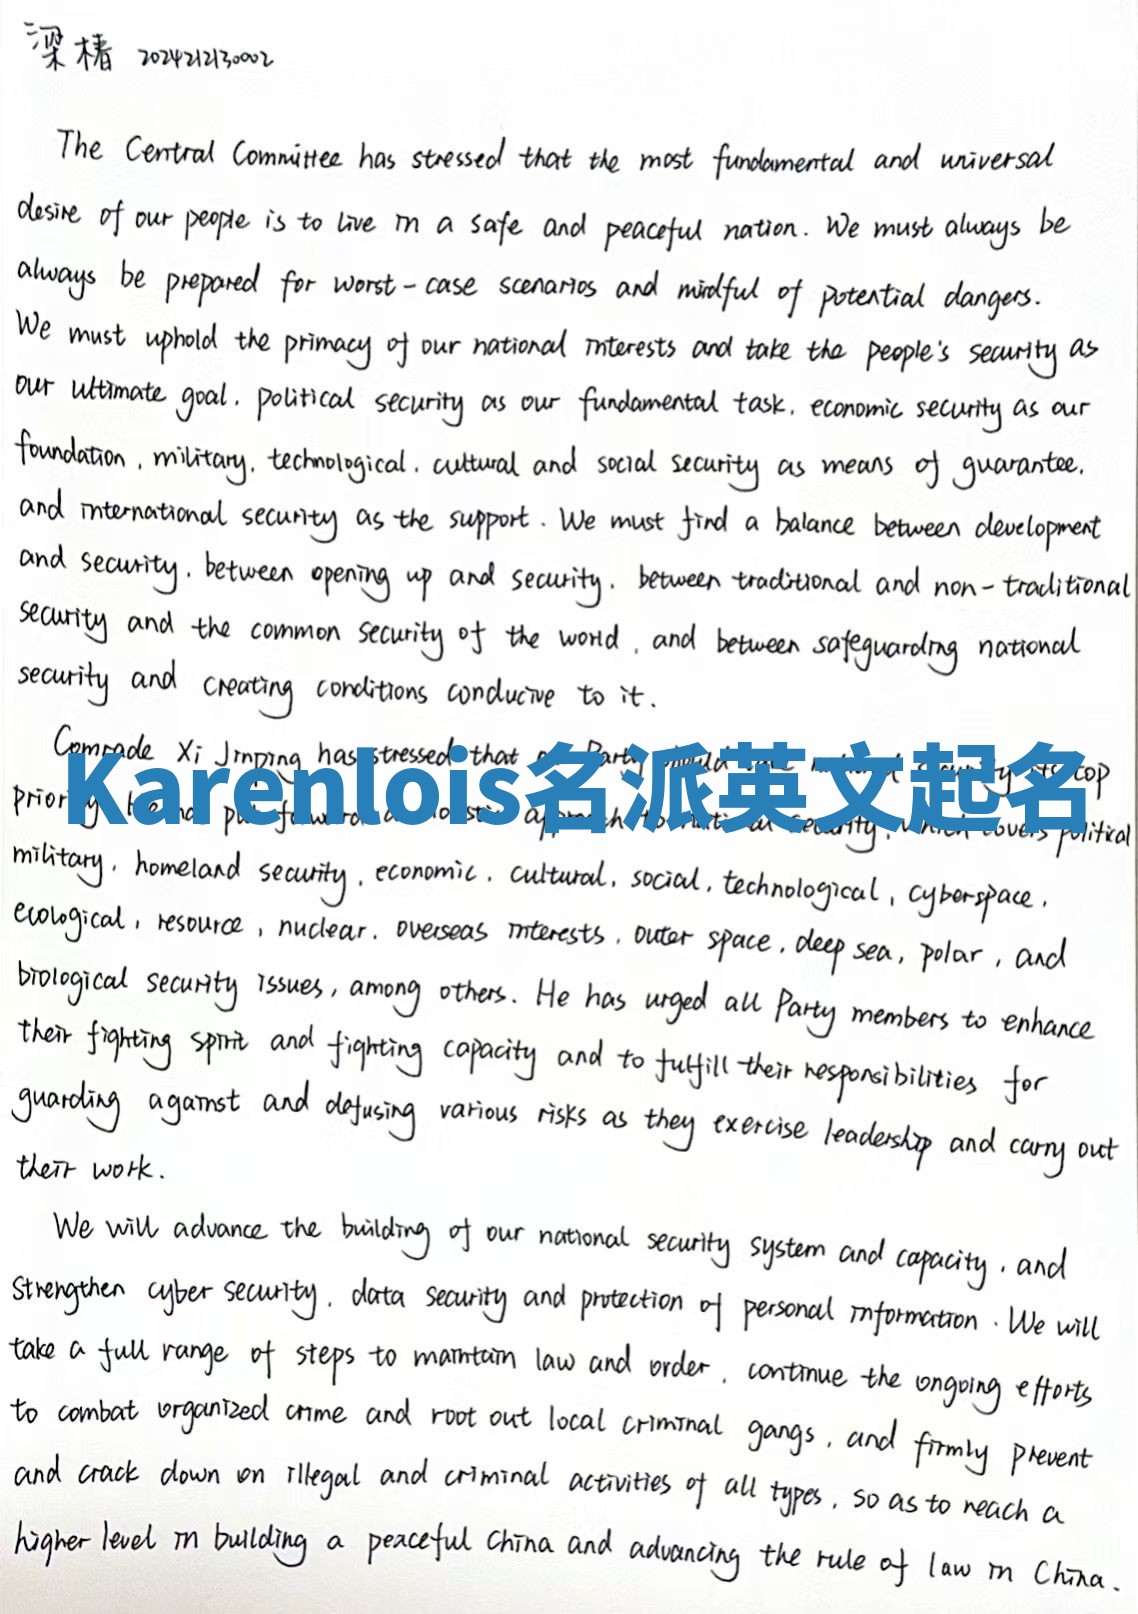 梁椿 2024212130002
The Central Committee has stressed that the most fundamental and universal
desire of our people is to live in a safe and peaceful nation. We must always be
always be prepared for worst-case scenarios and mindful of potential dangers.
We must uphold the primacy of our national interests and take the people's security as
our ultimate goal, political security as our fundamental task, economic security as our
foundation, military, technological, cultural and social security as means of guarantee,
and international security as the support. We must find a balance between development
and security, between opening up and security, between traditional and non-traditional
security and the common security of the world, and between safeguarding national
security and creating conditions conducive to it.
Comrade Xi Jinping has stressed that Party top
Karenlois名派英文起名
security, which covers political
military, homeland security, economic, cultural, social, technological, cyberspace,
ecological, resource, nuclear, overseas interests, outer space, deep sea, polar, and
biological security issues, among others. He has urged all Party members to enhance
their fighting spirit and fighting capacity and to fulfill their responsibilities for
guarding against and defusing various risks as they exercise leadership and carry out
their work.
We will advance the building of our national security system and capacity, and
strengthen cyber security, data security and protection of personal information. We will
take a full range of steps to maintain law and order, continue the ongoing efforts
to combat organized crime and root out local criminal gangs, and firmly prevent
and crack down on illegal and criminal activities of all types, so as to reach a
higher level in building a peaceful China and advancing the rule of law in China.